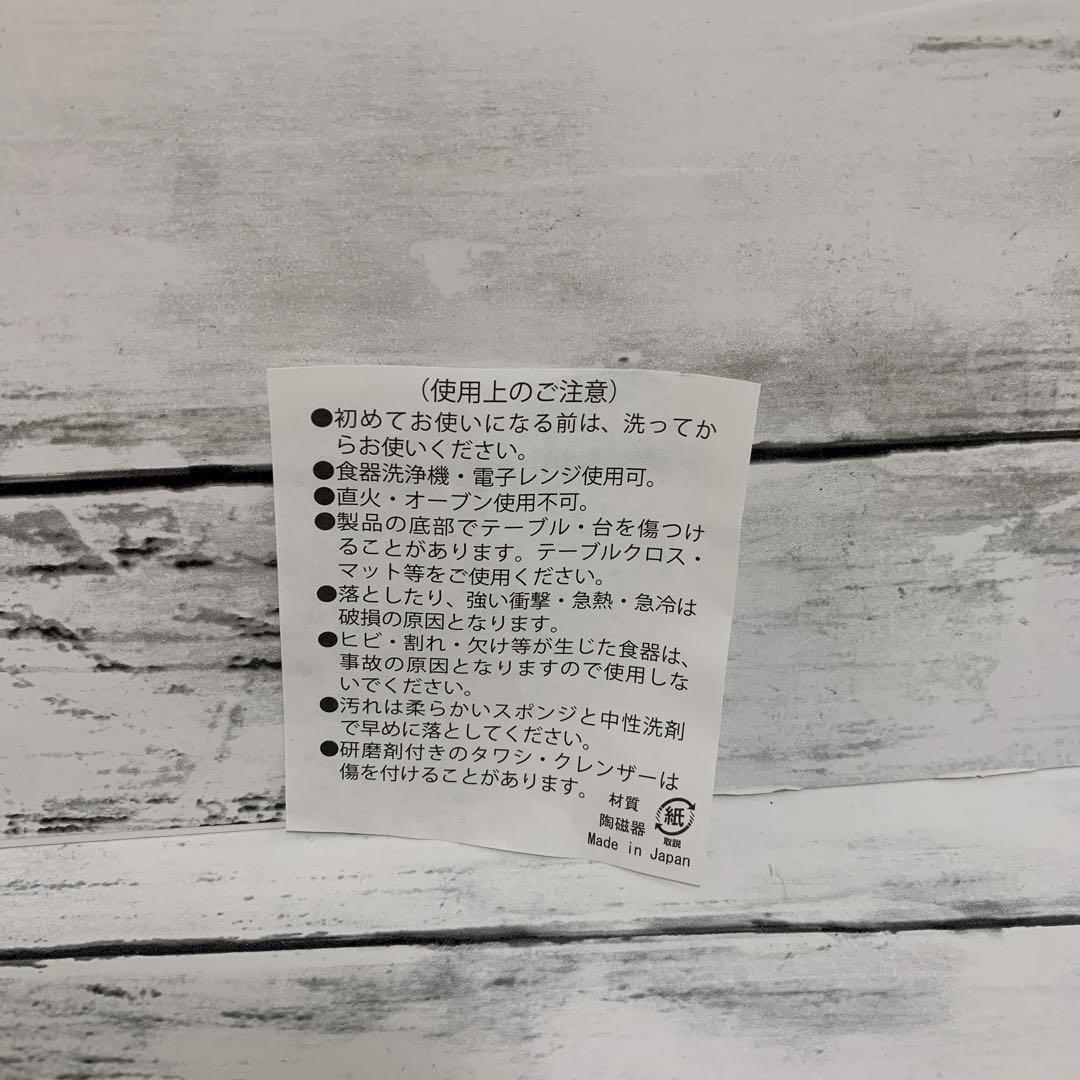 (使用上のご注意)
●初めてお使いになる前は、洗ってか
らお使いください。
●食器洗浄機・電子レンジ使用可。
●直火・オーブン使用不可。
●製品の底部でテーブル・台を傷つけ
ることがあります。テーブルクロス・
マット等をご使用ください。
●落としたり、強い衝撃・急熱・急冷は
破損の原因となります。
●ヒビ・割れ・欠け等が生じた食器は、
事故の原因となりますので使用しな
いでください。
●汚れは柔らかいスポンジと中性洗剤
で早めに落としてください。
●研磨剤付きのタワシ・クレンザーは
傷を付けることがあります。
材質
陶磁器
紙
取説
Made in Japan